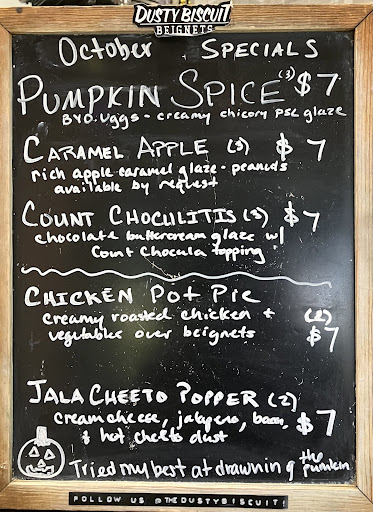 DUSTY BISCUIT
BEIGNETS
October SPECIALS
PUMPKIN SPICE (3) $7
BYO. Uggs - creamy chicory PSL glaze
CARAMEL APPLE (3) $7
rich apple caramel glaze - peanuts
available by request
COUNT CHOCULITIS (3) $7
chocolate buttercream glaze w/
Count Chocula topping
CHICKEN Pot Pie
creamy roasted chicken + (2)
vegetables over beignets $7
JALA CHEETO POPPER (2)
cream cheese, jalapeno, bacon, $7
+ hot cheeto dust
Tried my best at drawning the
pumkin
FOLLOW US @THEDUSTYBISCUIT!